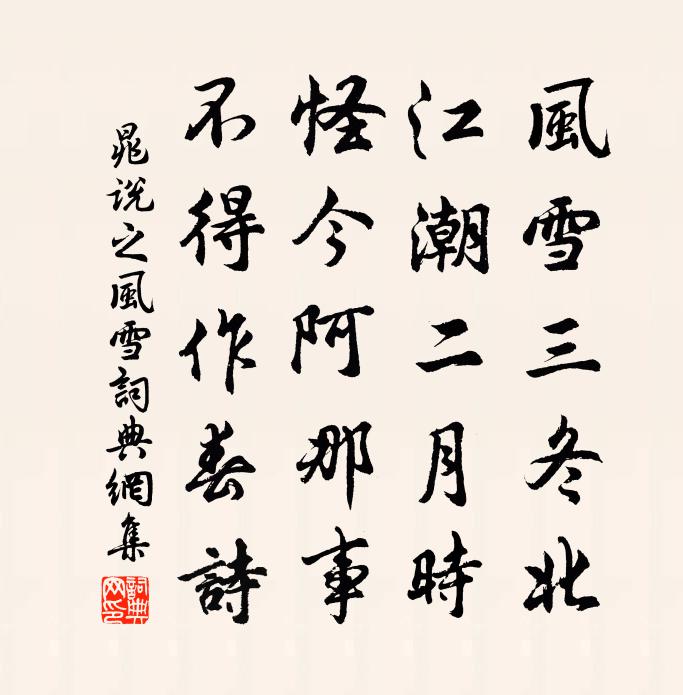 風雪三冬北
江潮二月時
怪今阿那事
不得作春詩
晁說之風雪詞典網集
詞典網印